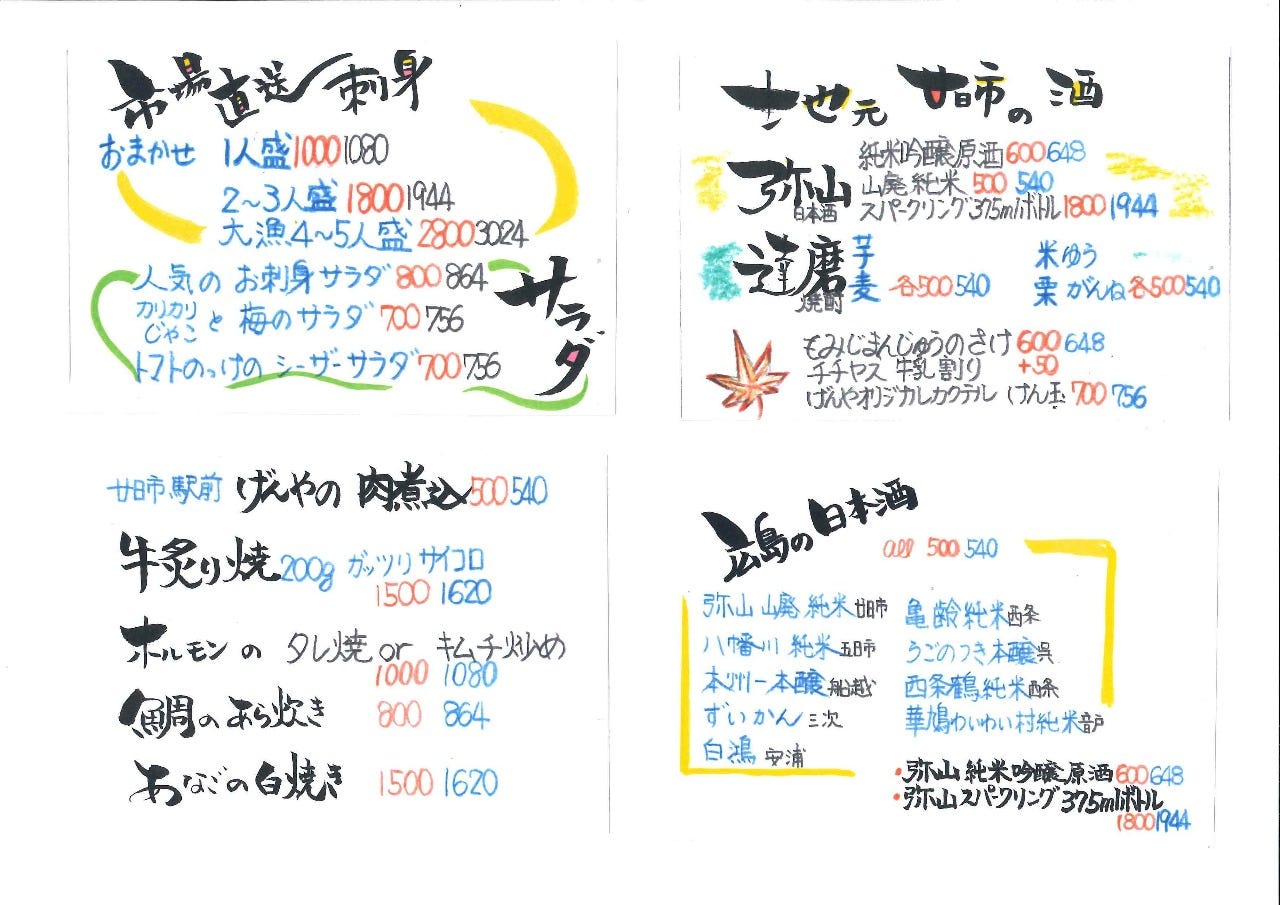 市場直送 刺身
おまかせ 1人盛 1000 1080
2〜3人盛 1800 1944
大漁4〜5人盛 2800 3024
サラダ
人気の お刺身サラダ 800 864
カリカリじゃこと 梅のサラダ 700 756
トマトのっけの シーザーサラダ 700 756
地元 廿日市の酒
弥山 日本酒
純米吟醸原酒 600 648
山廃純米 500 540
スパークリング375mlボトル 1800 1944
達磨 焼酎
芋 米ゆう
麦 各500 540 栗 がんね 各500 540
もみじまんじゅうのさけ 600 648
チチヤス 牛乳割り +50
げんやオリジカルカクテル けん玉 700 756
廿日市駅前 げんやの 肉煮込 500 540
牛炙り焼 200g ガッツリ サイコロ
1500 1620
ホルモンの タレ焼 or キムチ炒め
1000 1080
鯛のあら炊き 800 864
あなごの白焼き 1500 1620
広島の日本酒
all 500 540
弥山 山廃 純米 廿日市
八幡川 純米 五日市
本州一本醸 船越
ずいかん 三次
白鴻 安浦
亀齢純米 西条
うごのつき本醸 呉
西条鶴純米 西条
華鳩わいわい村純米 音戸
・弥山 純米吟醸原酒 600 648
・弥山スパークリング 375mlボトル
1800 1944